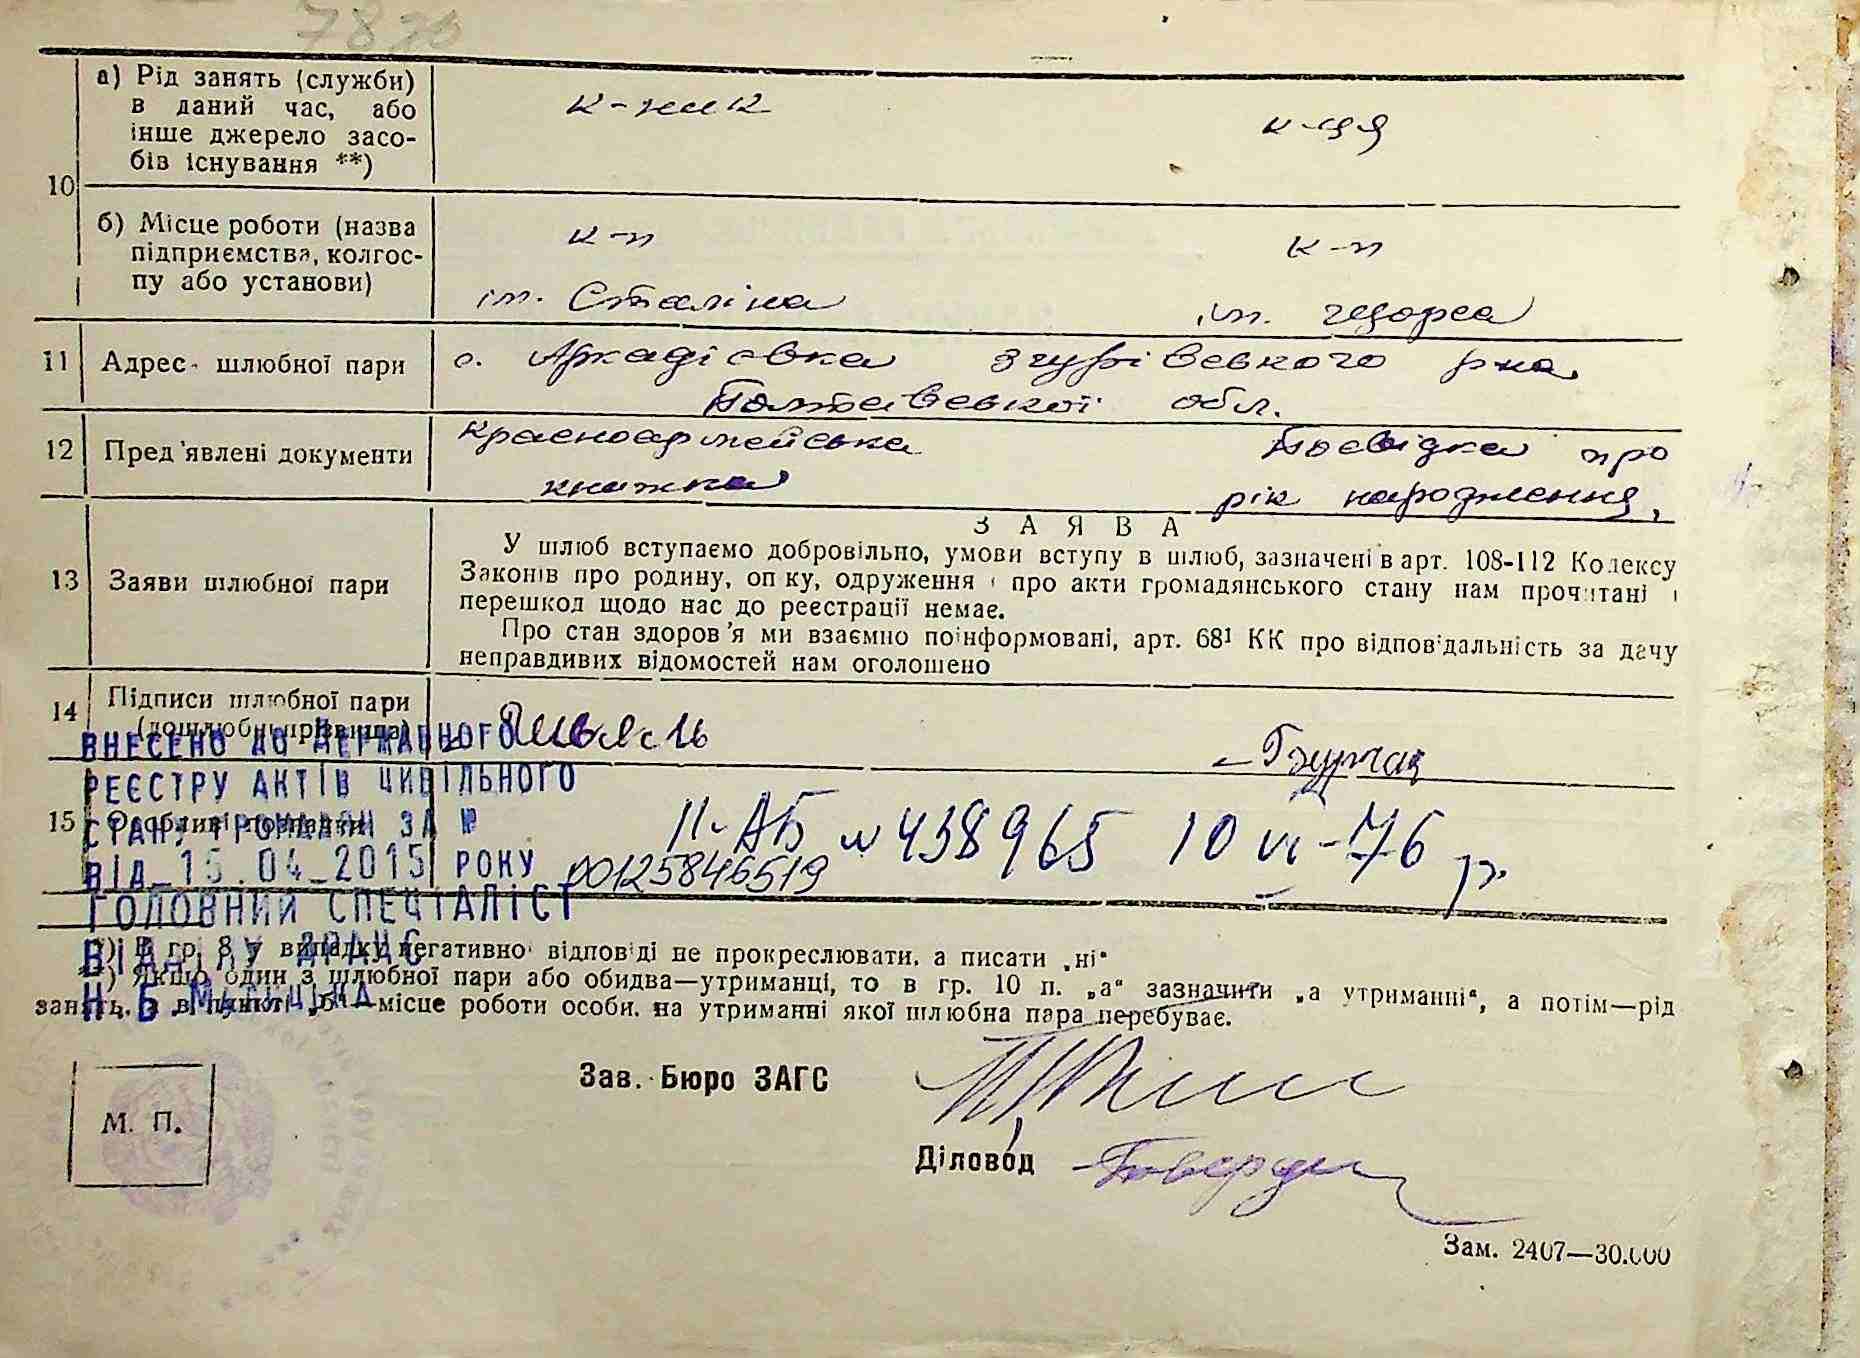 7820
а) Рід занять (служби)
в даний час, або
інше джерело засо-
бів існування **)
к-ник
к-ця
10
б) Місце роботи (назва
підприємства, колгос-
пу або установи)
к-п
к-п
ім. Сталіна
ім. Щорса
11 Адрес шлюбної пари
с. Аркадієвка Згурівського р-на
Полтавської обл.
12 Пред'явлені документи
Красноармейська
книжка
Посвідка про
рік народження,
ЗАЯВА
13 Заяви шлюбної пари
У шлюб вступаємо добровільно, умови вступу в шлюб, зазначені в арт. 108-112 Кодексу
Законів про родину, опіку, одруження і про акти громадянського стану нам прочитані і
перешкод щодо нас до реєстрації немає.
Про стан здоров'я ми взаємно поінформовані, арт. 68¹ КК про відповідальність за дачу
неправдивих відомостей нам оголошено
14 Підписи шлюбної пари
(дошлюбні прізвища)
15 Особливі
ІІ-АБ № 438965 10 VI-76 р.
ВНЕСЕНО ДО ДЕРЖАВНОГО
РЕЄСТРУ АКТІВ ЦИВІЛЬНОГО
СТАНУ ГРОМАДЯН ЗА №
ВІД 15.04.2015 РОКУ 00125846519
ГОЛОВНИЙ СПЕЦІАЛІСТ
ВІДДІЛУ ДРАЦС
Н.Б.
*) В гр. 8 у випадку негативної відповіді не прокреслювати, а писати „ні“
**) Якщо один з шлюбної пари або обидва—утриманці, то в гр. 10 п. „а“ зазначити „а утриманні“, а потім—рід
занять, а в пункті „б“—місце роботи особи, на утриманні якої шлюбна пара перебуває.
М. П.
Зав. Бюро ЗАГС
Діловод
Зам. 2407—30.000